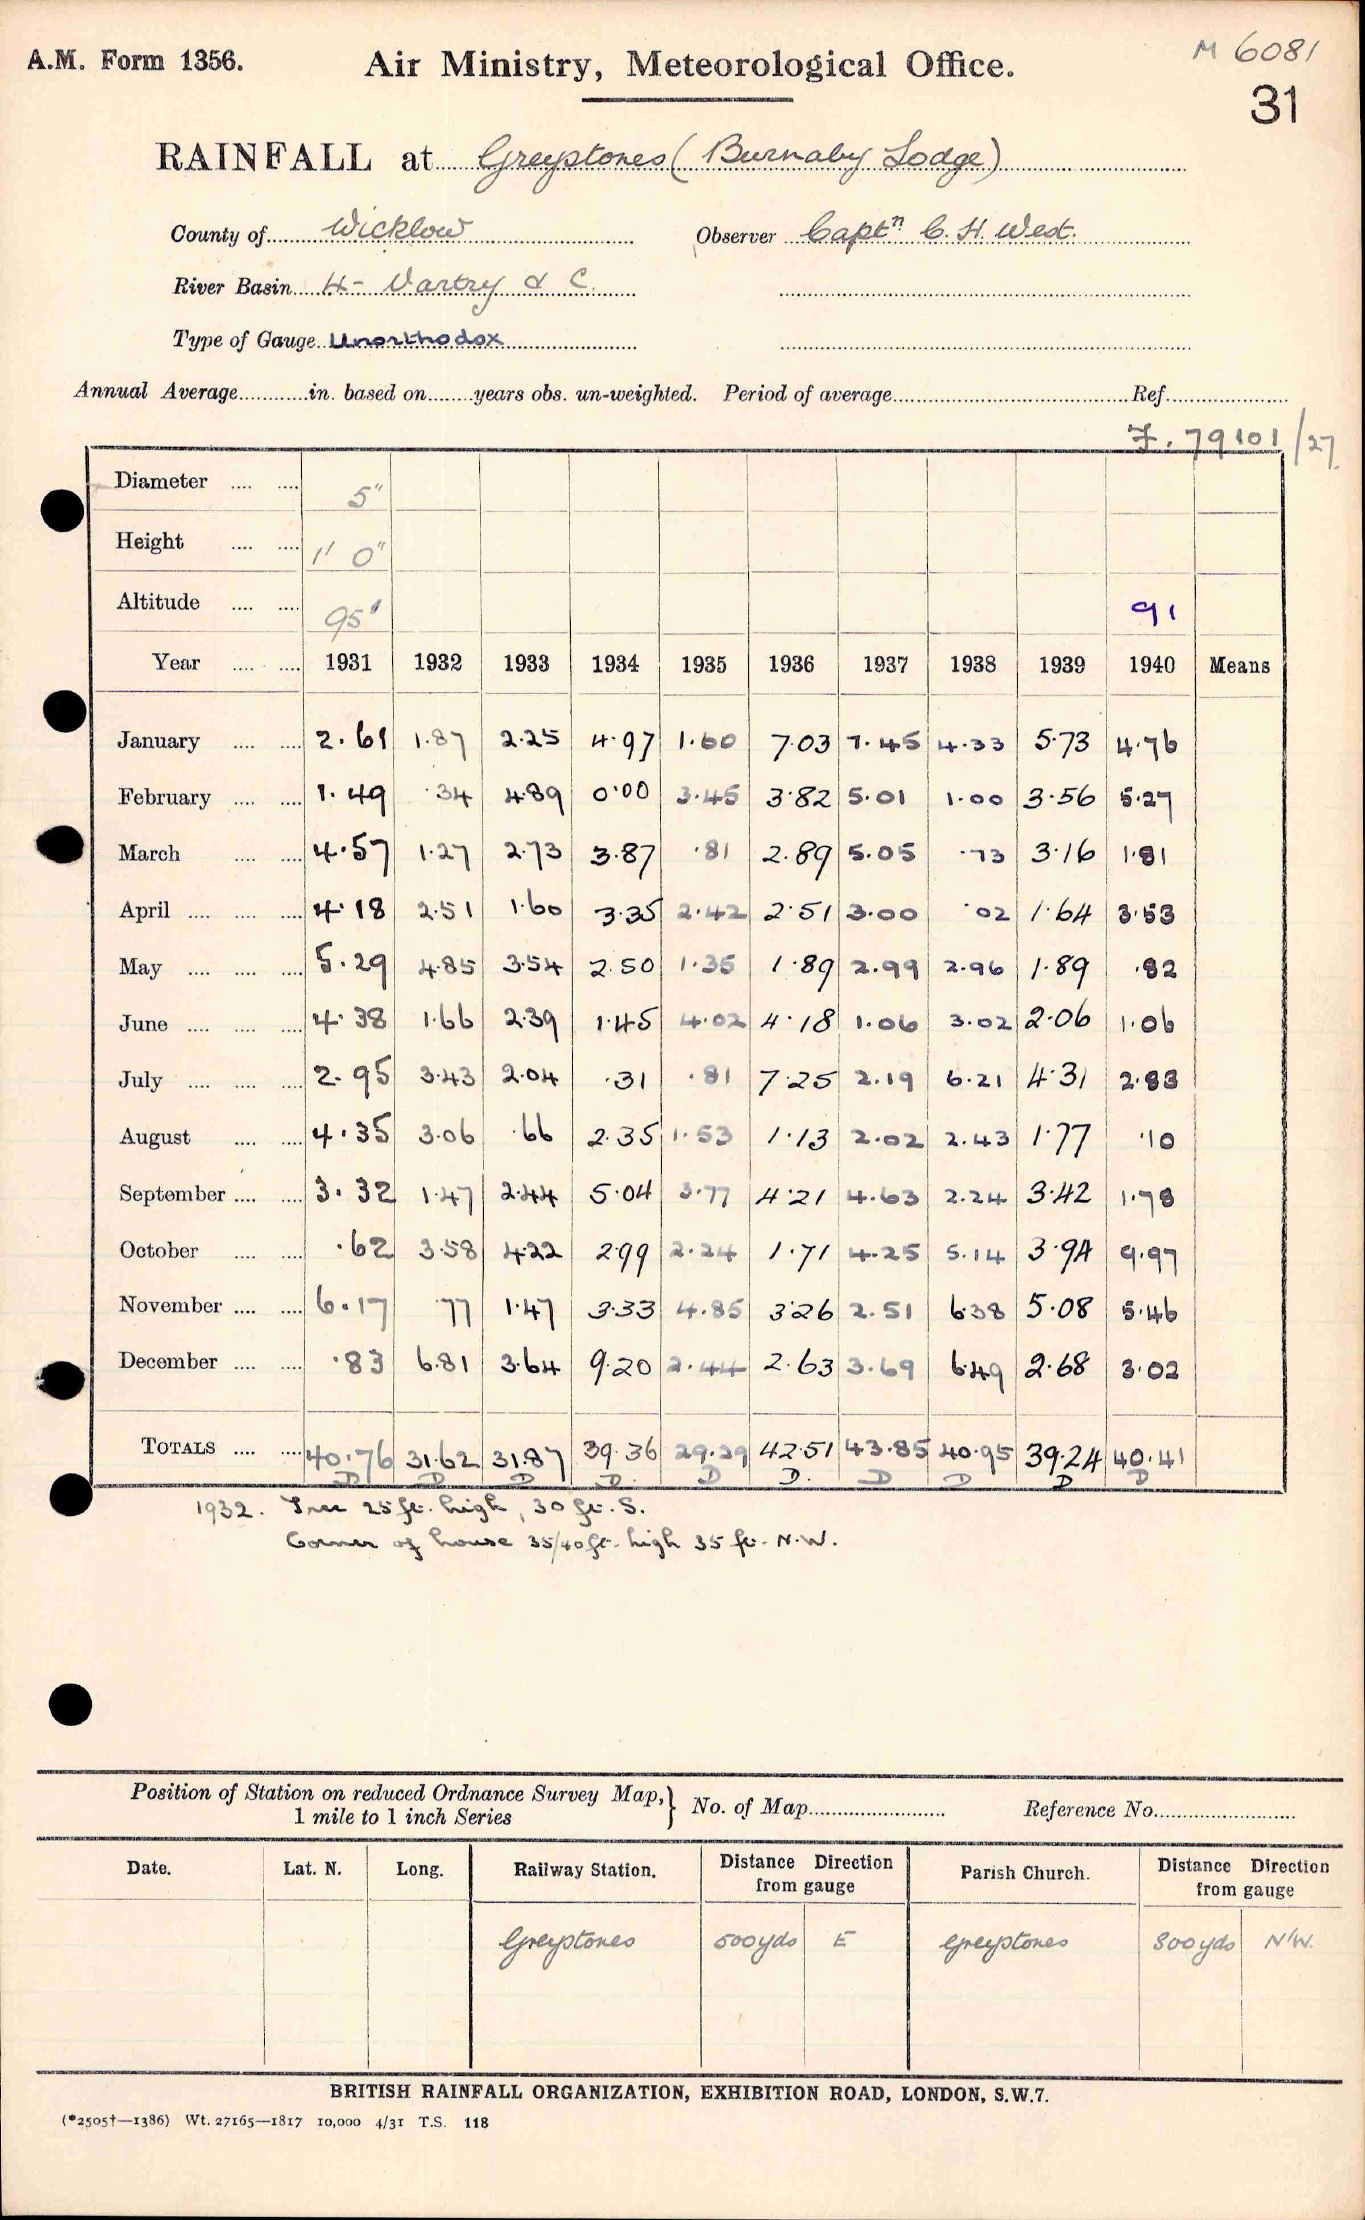 A.M. Form 1356.
Air Ministry, Meteorological Office.
M 6081
31
RAINFALL at Greystones (Burnaby Lodge)
County of Wicklow Observer Captn C. H. West.
River Basin 4- Vartry & C.
Type of Gauge Unorthodox
Annual Average in. based on years obs. un-weighted. Period of average Ref.
F. 79101/27
Diameter 5"
Height 1' 0"
Altitude 95' 91
Year 1931 1932 1933 1934 1935 1936 1937 1938 1939 1940 Means
January 2.61 1.87 2.25 4.97 1.60 7.03 7.45 4.33 5.73 4.76
February 1.49 .34 4.89 0.00 3.45 3.82 5.01 1.00 3.56 5.27
March 4.57 1.27 2.73 3.87 .81 2.89 5.05 .73 3.16 1.81
April 4.18 2.51 1.60 3.35 2.42 2.51 3.00 .02 1.64 3.53
May 5.29 4.85 3.54 2.50 1.35 1.89 2.99 2.96 1.89 .82
June 4.38 1.66 2.39 1.45 4.02 4.18 1.06 3.02 2.06 1.06
July 2.95 3.43 2.04 .31 .81 7.25 2.19 6.21 4.31 2.83
August 4.35 3.06 .66 2.35 1.53 1.13 2.02 2.43 1.77 .10
September 3.32 1.47 2.44 5.04 3.77 4.21 4.63 2.24 3.42 1.78
October .62 3.58 4.22 2.99 2.24 1.71 4.25 5.14 3.94 9.97
November 6.17 .77 1.47 3.33 4.85 3.26 2.51 6.38 5.08 5.46
December .83 6.81 3.64 9.20 2.44 2.63 3.69 6.49 2.68 3.02
TOTALS 40.76 31.62 31.87 39.36 29.29 42.51 43.85 40.95 39.24 40.41
D D D D. D D. D D D D
1932. Tree 25 ft. high, 30 ft. S.
Corner of house 35/40 ft. high 35 ft. N.W.
Position of Station on reduced Ordnance Survey Map, } No. of Map Reference No.
1 mile to 1 inch Series
Date. Lat. N. Long. Railway Station. Distance Direction from gauge Parish Church. Distance Direction from gauge
Greystones 500 yds E Greystones 800 yds N'W.
BRITISH RAINFALL ORGANIZATION, EXHIBITION ROAD, LONDON, S.W.7.
(*2505†—1386) Wt. 27165—1817 10,000 4/31 T.S. 118